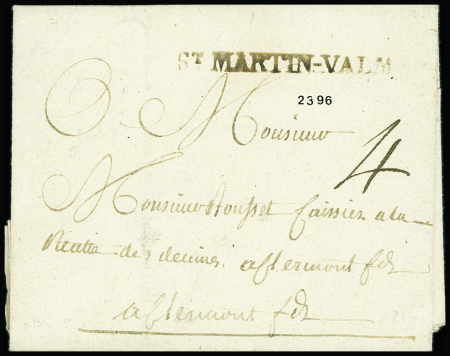 ST MARTIN-VALM
2396
Monsieur
4
Monsieur Rousset Caissier a la
Recette des decimes a Clermont fd
a Clermont fd